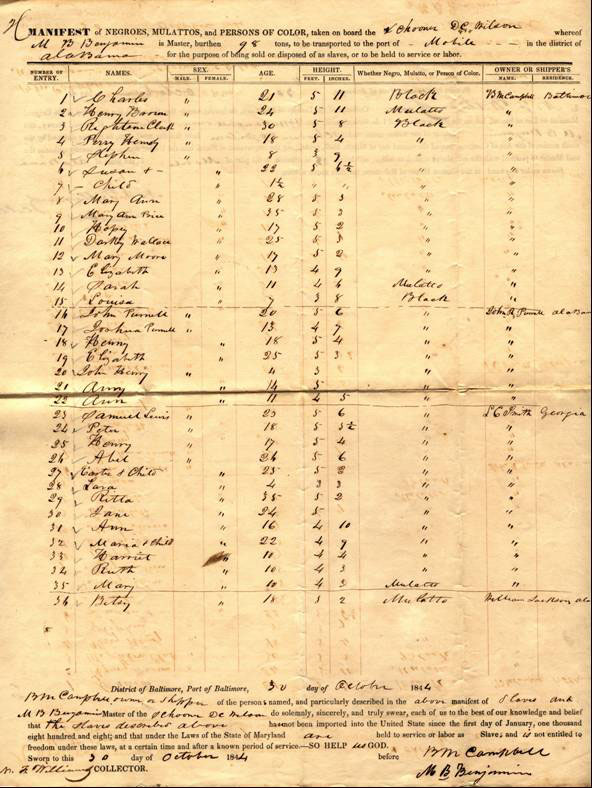 MANIFEST of NEGROES, MULATTOS, and PERSONS OF COLOR, taken on board the Schooner D C Wilson whereof
M B Benjamin is Master, burthen 98 tons, to be transported to the port of Mobile in the district of
Alabama for the purpose of being sold or disposed of as slaves, or to be held to service or labor.
NUMBER OF ENTRY. NAMES. SEX. AGE. HEIGHT. Whether Negro, Mulatto, or Person of Color. OWNER OR SHIPPER'S
MALE. FEMALE. FEET. INCHES. NAME. RESIDENCE.
1 Charles " 21 5 11 Black B M Campbell Baltimore
2 Henry Brown " 24 5 11 Mulatto "
3 Clark " 30 5 8 Black "
4 Perry " 18 5 4 " "
5 Stephen " 8 3 9 " "
6 Susan & - " 22 5 6½ " "
7 - Child " 1½ " " " "
8 Mary Ann " 28 5 3 " "
9 Mary Ann Price " 35 5 3 " "
10 " 17 5 2 " "
11 Darky Wallace " 25 5 3 " "
12 Mary Moore " 17 5 2 " "
13 Elizabeth " 13 4 9 " "
14 Sarah " 11 4 6 Mulatto "
15 Louisa " 7 3 8 Black "
16 John Purnell " 20 5 6 " John R Purnell Alabama
17 Joshua Purnell " 13 4 7 " "
18 Henny " 18 5 4 " "
19 Elizabeth " 25 5 3 " "
20 John Henry " 4 3 " "
21 Amy " 14 5 " "
22 Ann " 11 4 5 " "
23 Samuel Lewis " 23 5 6 " S C Smith Georgia
24 Peter " 18 5 5½ " "
25 Henry " 17 5 4 " "
26 Abel " 26 5 6 " "
27 & Child " 25 5 2 " "
28 " 4 3 3 " "
29 Ritta " 35 5 2 " "
30 Jane " 24 5 " "
31 Ann " 16 4 10 " "
32 Maria & Child " 22 4 9 " "
33 Harriet " 10 4 4 " "
34 Ruth " 10 4 3 " "
35 Mary " 10 4 3 Mulatto "
36 Betsy " 18 5 2 Mulatto William Jackson Ala
District of Baltimore, Port of Baltimore, 30 day of October 1844
B M Campbell owner or shipper of the persons named, and particularly described in the above manifest of slaves and
M B Benjamin Master of the Schooner D C Wilson do solemnly, sincerely, and truly swear, each of us to the best of our knowledge and belief
that the slaves described above has not been imported into the United State since the first day of January, one thousand
eight hundred and eight; and that under the Laws of the State of Maryland are held to service or labor as Slaves; and is not entitled to
freedom under these laws, at a certain time and after a known period of service.—SO HELP us GOD.
Sworn to this 30 day of October 1844 before B M Campbell
Williams COLLECTOR. M B Benjamin